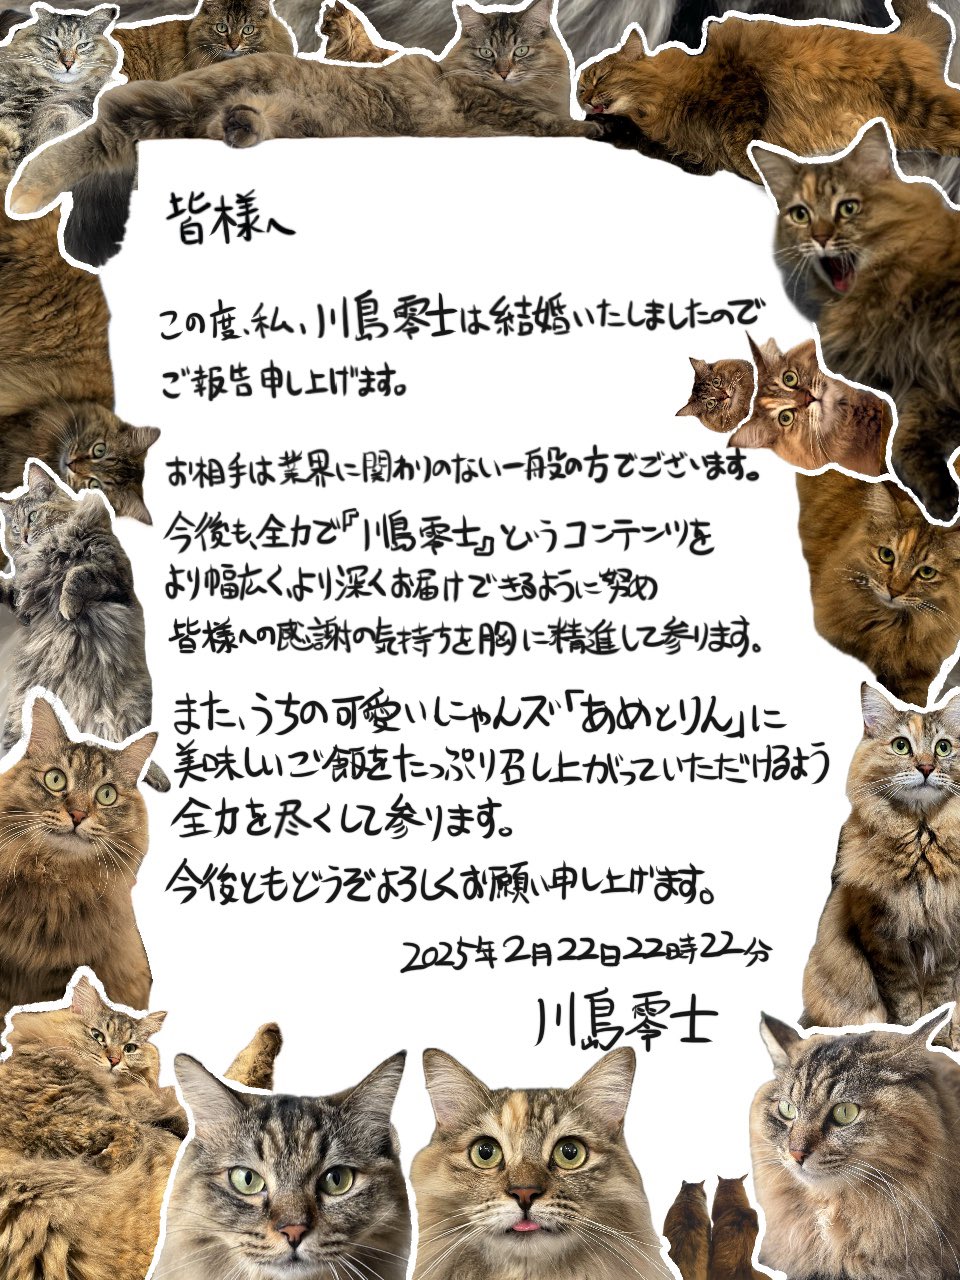 皆様へ
この度、私、川島零士は結婚いたしましたので
ご報告申し上げます。
お相手は業界に関わりのない一般の方でございます。
今後も、全力で『川島零士』というコンテンツを
より幅広く、より深くお届けできるように努め
皆様への感謝の気持ちを胸に精進して参ります。
また、うちの可愛いにゃんズ「あめとりん」に
美味しいご飯をたっぷり召し上がっていただけるよう
全力を尽くして参ります。
今後ともどうぞよろしくお願い申し上げます。
2025年2月22日22時22分
川島零士